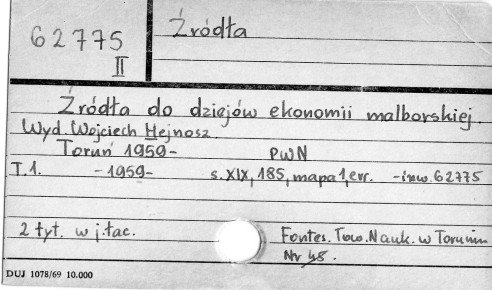 62775
II
Źródła
Źródła do dziejów ekonomii malborskiej.
Wyd. Wojciech Hejnosz.
Toruń 1959- PWN
T.1. -1959- s. XIX, 185, mapa 1, err. - inw. 62775
2 tyt. w j. łac. Fontes. Tow. Nauk. w Toruniu
Nr 45.
DUJ 1078/69 10.000